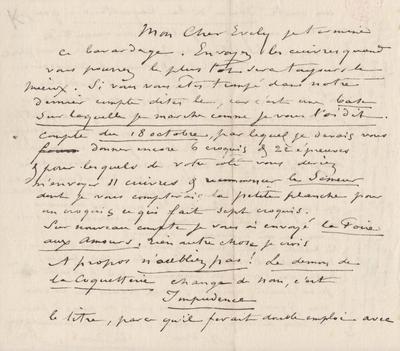 Mon Cher Evely je termine
ce bavardage. Envoyez les cuivres quand
vous pourrez, le plus tôt sera toujours le
mieux. Si vous vous êtes trompé dans notre
dernier compte dites le, car c'est une base
sur laquelle je marche comme je vous l'ai dit.
Compte du 18 octobre, par lequel je devais vous
donner encore 6 croquis & 22 épreuves
& pour lesquels de votre côté vous deviez
m'envoyer 11 cuivres & recommencer le Semeur
dont je vous compterais la petite planche pour
un croquis ce qui fait sept croquis.
Sur nouveau compte je vous ai envoyé la Foire
aux Amours, rien autre chose je crois
A propos n'oubliez pas! Le démon de
la Coquetterie change de nom, c'est
Impudence
le titre, parce qu'il ferait double emploi avec